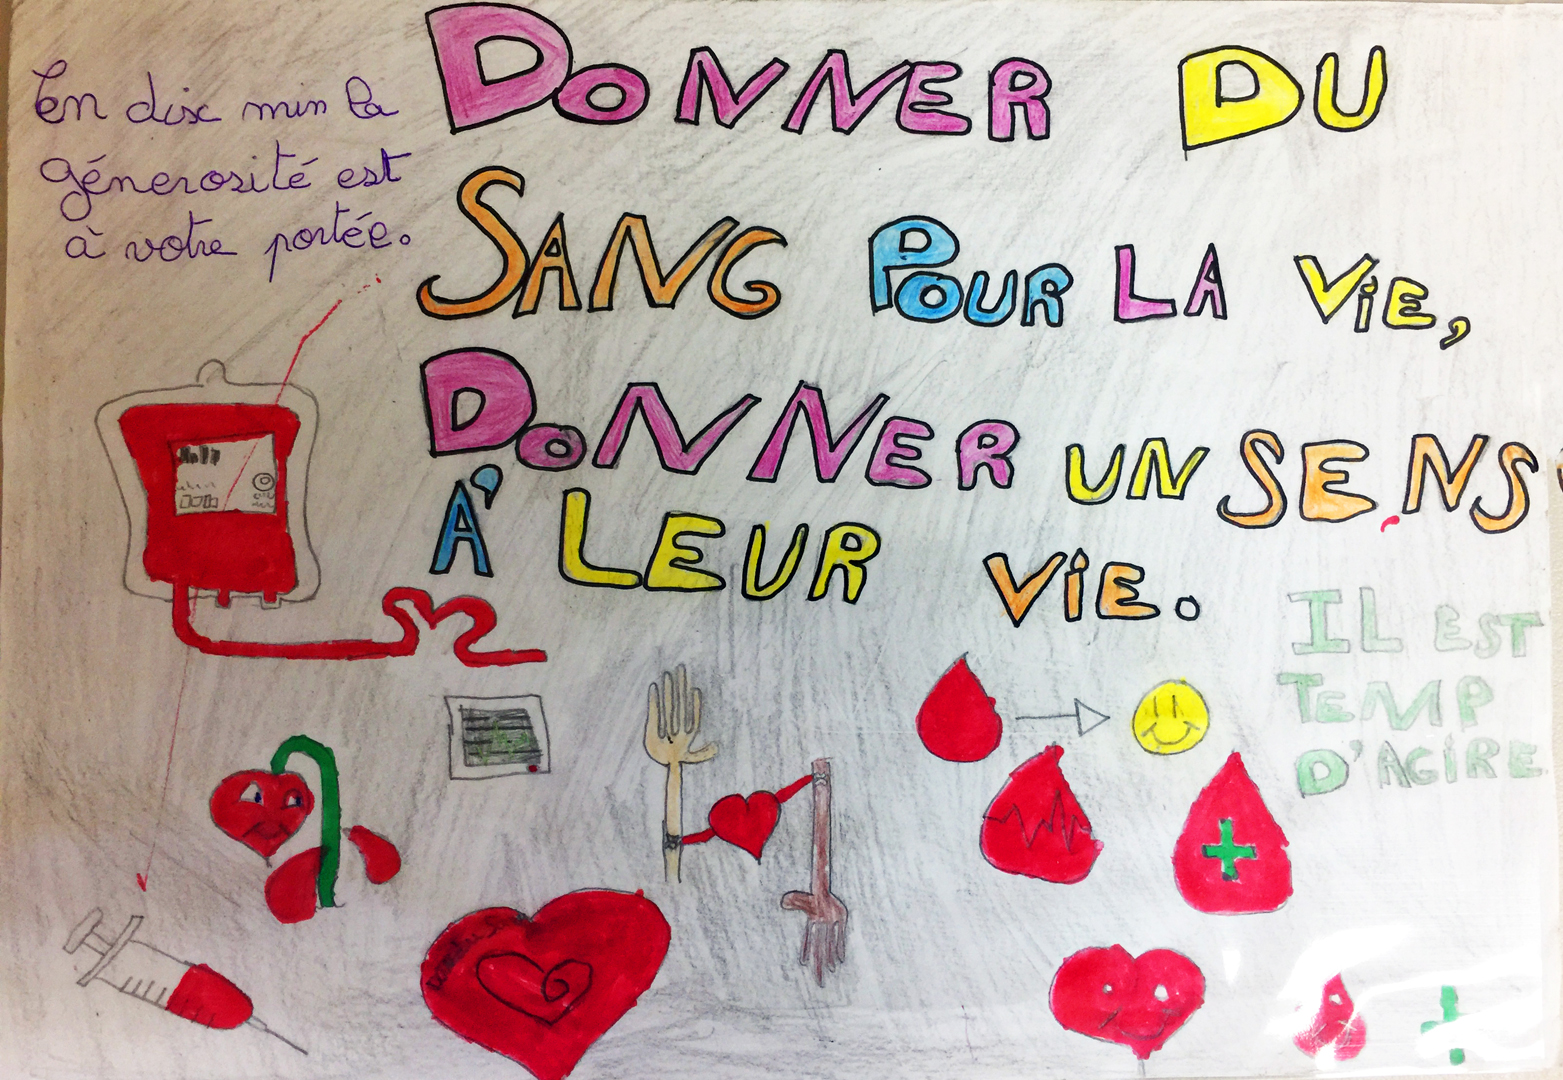 En dix min la
génerosité est
à votre portée.
DONNER DU
SANG POUR LA ViE,
DONNER UN SENS
À LEUR ViE.
IL EST
TEMP
D'AGIRE